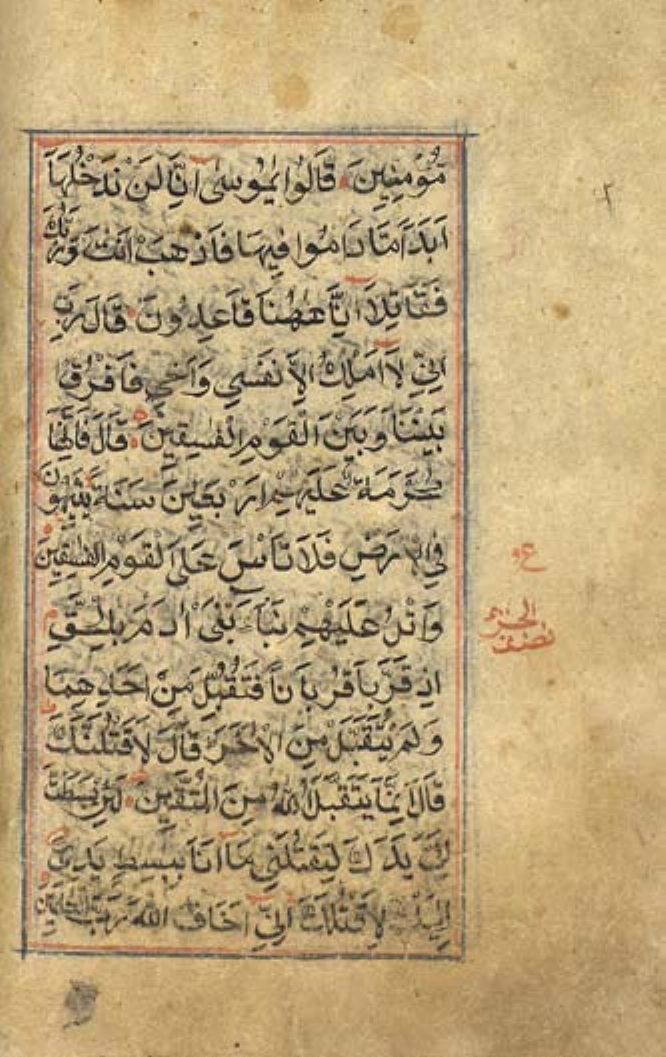 مُؤْمِنِينَ قَالُوا يٰمُوسٰى اِنَّا لَنْ نَدْخُلَهَا
اَبَدًا مَّا دَامُوا فِيهَا فَاذْهَبْ اَنْتَ وَرَبُّكَ
فَقَاتِلَا اِنَّا هٰهُنَا قَاعِدُونَ قَالَ رَبِّ
اِنِّي لَا اَمْلِكُ اِلَّا نَفْسِي وَاَخِي فَافْرُقْ
بَيْنَنَا وَبَيْنَ الْقَوْمِ الْفٰسِقِينَ قَالَ فَاِنَّهَا
مُحَرَّمَةٌ عَلَيْهِمْ اَرْبَعِينَ سَنَةً يَتِيهُونَ
فِي الْاَرْضِ فَلَا تَاْسَ عَلَى الْقَوْمِ الْفٰسِقِينَ
وَاتْلُ عَلَيْهِمْ نَبَاَ ابْنَيْ اٰدَمَ بِالْحَقِّ
اِذْ قَرَّبَا قُرْبَانًا فَتُقُبِّلَ مِنْ اَحَدِهِمَا
وَلَمْ يُتَقَبَّلْ مِنَ الْاٰخَرِ قَالَ لَاَقْتُلَنَّكَ
قَالَ اِنَّمَا يَتَقَبَّلُ اللّٰهُ مِنَ الْمُتَّقِينَ لَئِنْ بَسَطْتَ
اِلَيَّ يَدَكَ لِتَقْتُلَنِي مَا اَنَا بِبَسِطٍ يَدِيَ
اِلَيْكَ لِاَقْتُلَكَ اِنِّي اَخَافُ اللّٰهَ رَبَّ الْعٰلَمِينَ
ع
الحزب
نصف